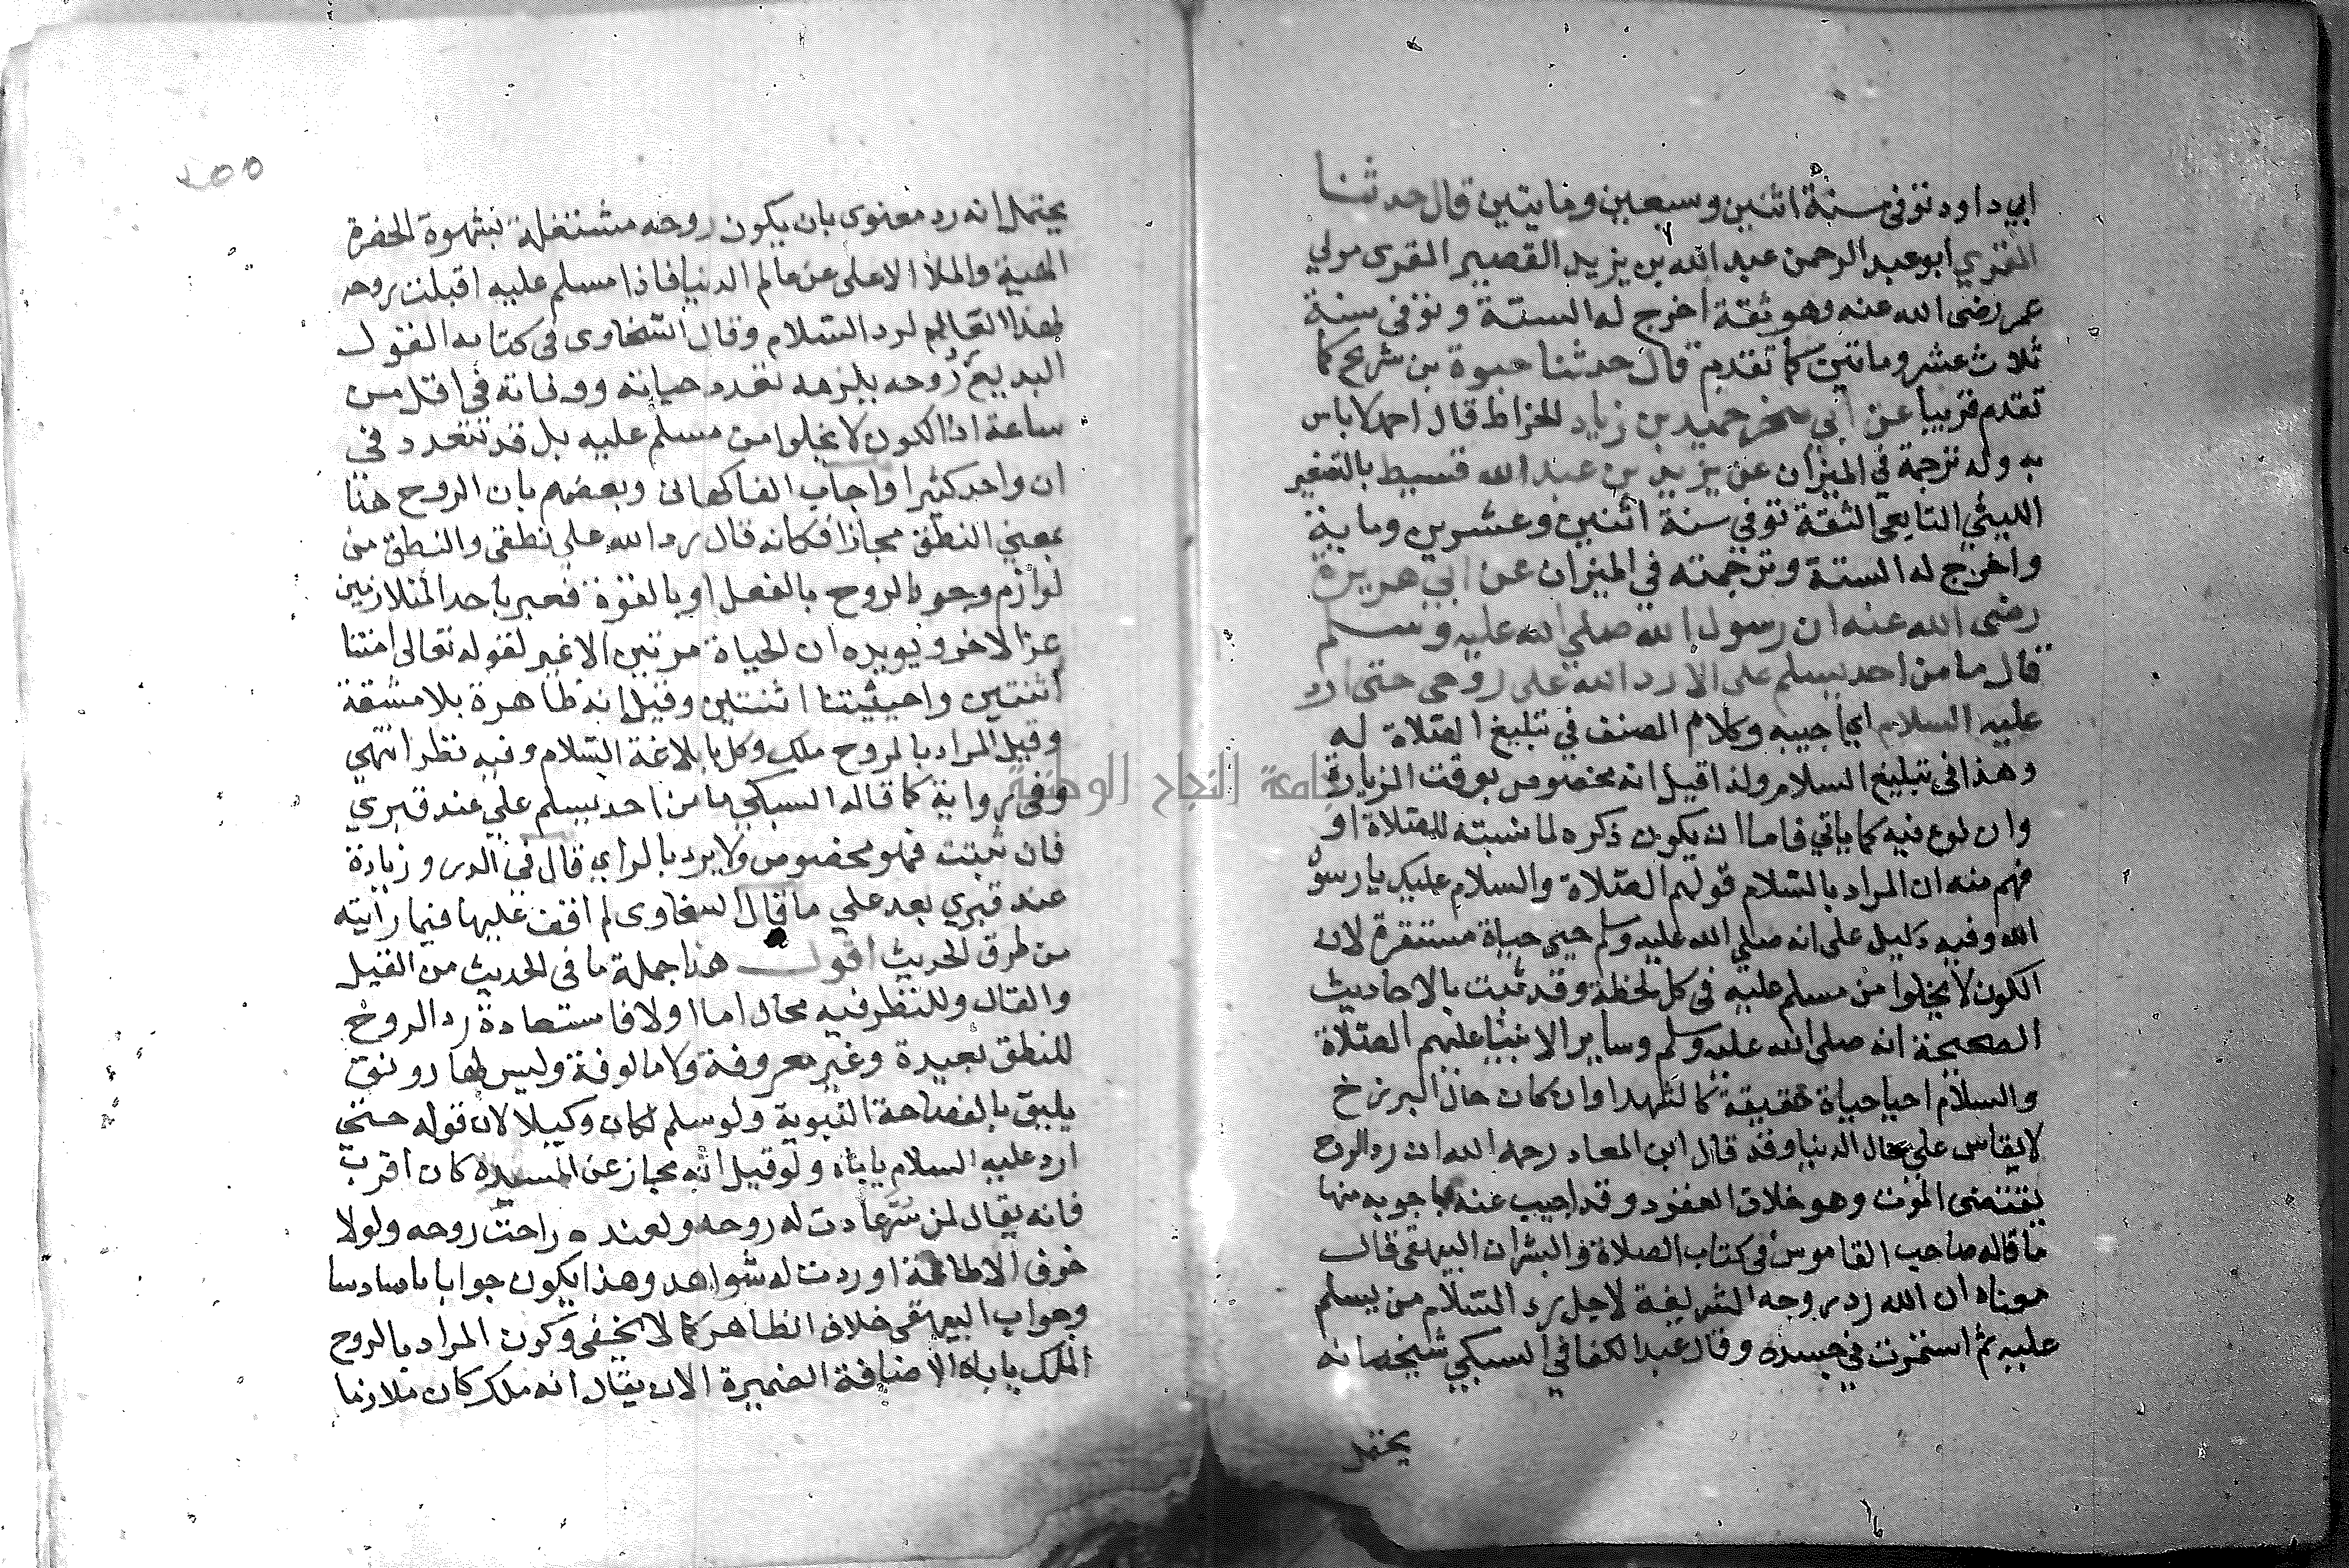 ابي داود توفى سنة اثنين وسبعين ومايتين قال حدثنا
المقري ابو عبد الرحمن عبد الله بن يزيد القصير المقرى مولي
عمر رضى الله عنه وهو ثقة اخرج له الستة وتوفى سنة
ثلاث عشر وماتين كما تقدم قال حدثنا حيوة بن شريح كما
تقدم قريبا عن ابي صخر حميد بن زياد الخراط قال احمد لا باس
به وله ترجمة في الميزان عن يزيد بن عبد الله قسيط بالتصغير
الليثي التابعى الثقة توفي سنة اثنين وعشرين وماية
واخرج له الستة وترجمته في الميزان عن ابي هريرة
رضى الله عنه ان رسول الله صلي الله عليه وسلم
قال ما من احد يسلم على الا رد الله على روحى حتى ارد
عليه السلام اي اجيبه وكلام المصنف في تبليغ الصلاة له
وهذا فى تبليغ السلام ولذا قيل انه مخصوص بوقت الزيارة
وان نوع فيه كما ياتي فاما ان يكون ذكره لمانسبته للصلاة او
فهم منه ان المراد بالسلام قولهم الصلاة والسلام عليك يا رسو
الله وفيه دليل على انه صلي الله عليه وسلم حيى حياة مستقرة لان
الكون لا يخلوا من مسلم عليه فى كل لحظة وقد ثبت بالاحاديث
الصحيحة انه صلى الله عليه وسلم وساير الانبيا عليهم الصلاة
والسلام احيا حياة حقيقة كالشهدا وان كان حال البرزخ
لا يقاس علي حال الدنيا وقد قال ابن العماد رحمه الله ان رد الروح
يقتضى الموت وهو خلاف المعقود وقد اجيب عنه باجوبه منها
ما قاله صاحب القاموس فى كتاب الصلاة والبشر ان البيهقى قال
معناه ان الله رد روحه الشريفة لاجل رد السلام من يسلم
عليه ثم استمرت في جسده وقال عبد الكفافي السبكي شيخها انه
يحتمل
٢٥٥
يحتمل انه رد معنوى بان يكون روحه مشتغلة بشهوة الحضرة
الهية والملأ الاعلى عن عالم الدنيا فاذا مسلم عليه اقبلت روحه
لهذا العالم لرد السلام وقال السخاوى فى كتابه القول
البديع روحه يلزمه تعدد حياته ووفاته في اقل من
ساعة اذ الكون لا يخلوا من مسلم عليه بل قد تتعدد في
ان واحد كثيرا واجاب الفاكهانى وبعضهم بان الروح هنا
بمعني النطق مجازا فكانه قال رد الله على نطقى والنطق من
لوازم وجود الروح بالفعل او بالقوة فعبر باحد المتلازمين
عن الاخر ويويده ان الحياة مرتين الاغير لقوله تعالى امتنا
اثنتين واحييتنا اثنتين وقيل انه ظاهرة بلا مشقة
وقيل المراد بالروح ملك وكل بابلاغة السلام وفيه نظر انتهي
وفى رواية كما قاله السبكي ما من احد يسلم علي عند قبري
فان ثبتت فهو مخصوص ولا يرد بالراي قال في الدر وزيادة
عند قبري بعد علي ما قال السخاوى لم اقف عليها فيما رايته
من طرق الحديث اقول هذا جملة ما فى الحديث من القيل
والقال وللنظر فيه مجال اما اولا فاستعادة رد الروح
للنطق بعيدة وغير معروفة ولا مالوفة وليس لها رونق
يليق بالفصاحة النبوية ولو سلم لكان وكيلا لان قوله حتي
ارد عليه السلام ياباه ولو قيل انه مجاز عن المسرة كان اقرب
فانه يقال لمن سر عادت له روحه ولضده راحت روحه ولولا
خوف الاطالة اوردت له شواهد وهذا يكون جوابا سادسا
وجواب البيهقى خلاف الظاهر كما لا يخفى وكون المراد بالروح
الملك ياباه الاضافة الضميرة الا ان يقال انه ملك كان ملازما